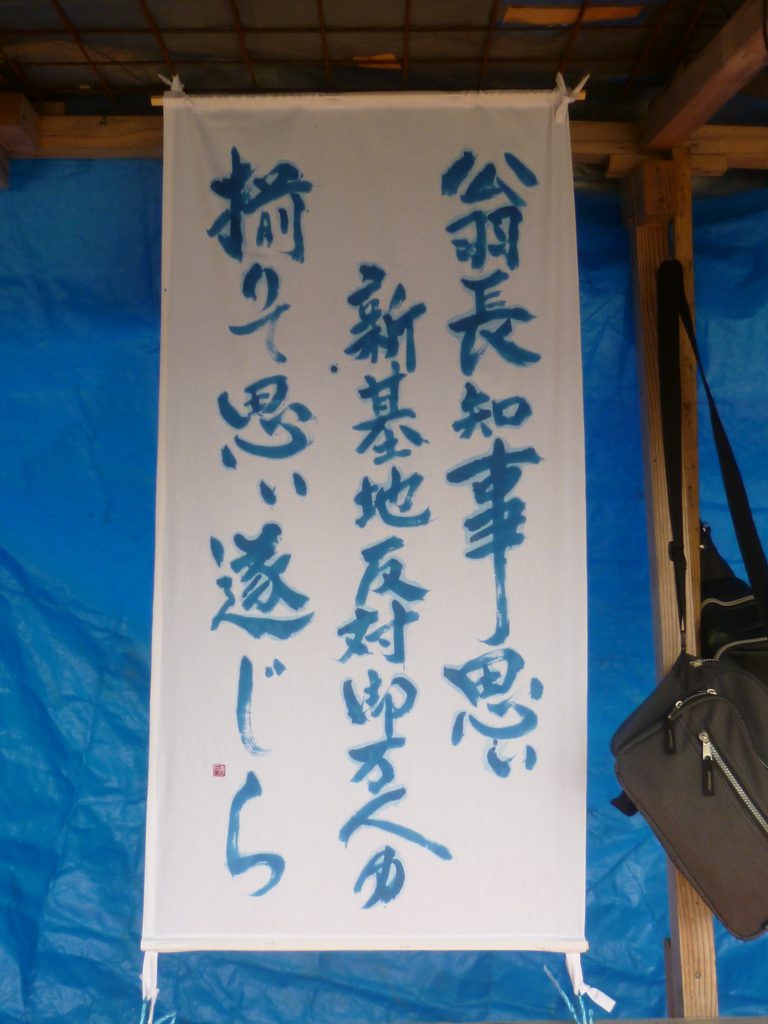 翁長知事思い
新基地反対御万人の
揃りて思い遂じら